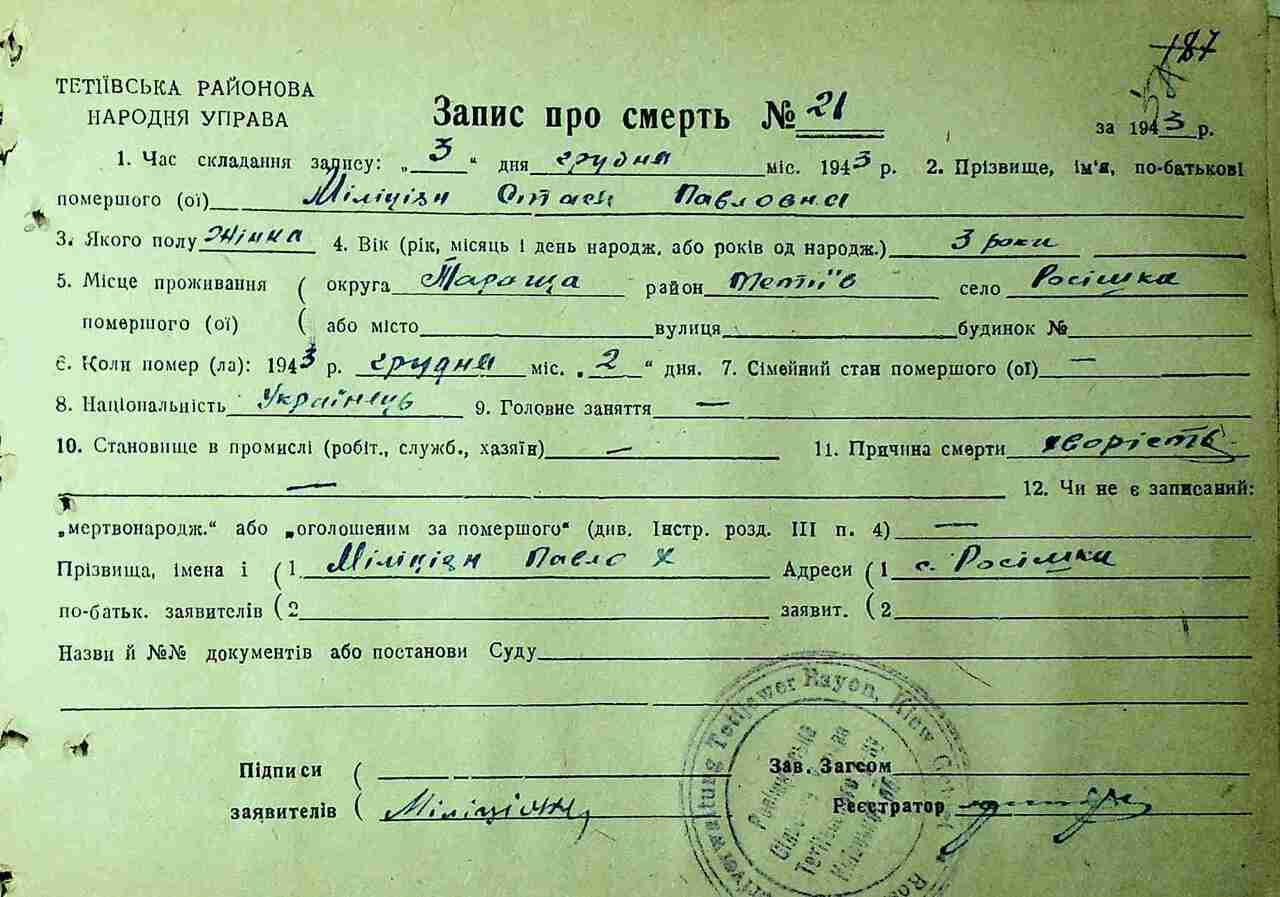 187
ТЕТІЇВСЬКА РАЙОНОВА
НАРОДНЯ УПРАВА
Запис про смерть № 21
за 1943 р.
1. Час складання запису: „ 3 “ дня грудня міс. 1943 р. 2. Прізвище, ім'я, по-батькові
помершого (ої) Міліціян Стася Павловна
3. Якого полу жінка 4. Вік (рік, місяць і день народж. або років од народж.) 3 роки
5. Місце проживання ( округа Тараща район Тетіїв село Росішка
помершого (ої) ( або місто вулиця будинок №
6. Коли помер (ла): 1943 р. грудня міс. „ 2 “ дня. 7. Сімейний стан помершого (ої) —
8. Національність Українець 9. Головне заняття —
10. Становище в промислі (робіт., служб., хазяїн) — 11. Причина смерти хворість
— 12. Чи не є записаний:
„мертвонародж.“ або „оголошеним за помершого“ (див. Інстр. розд. III п. 4) —
Прізвища, імена і ( 1. Міліціян Павло Х Адреси ( 1 с. Росішка
по-батьк. заявителів ( 2 заявит. ( 2
Назви й №№ документів або постанови Суду
Підписи ( Зав. Загсом
заявителів ( Реєстратор
Tetijewer Rayon, Kiew